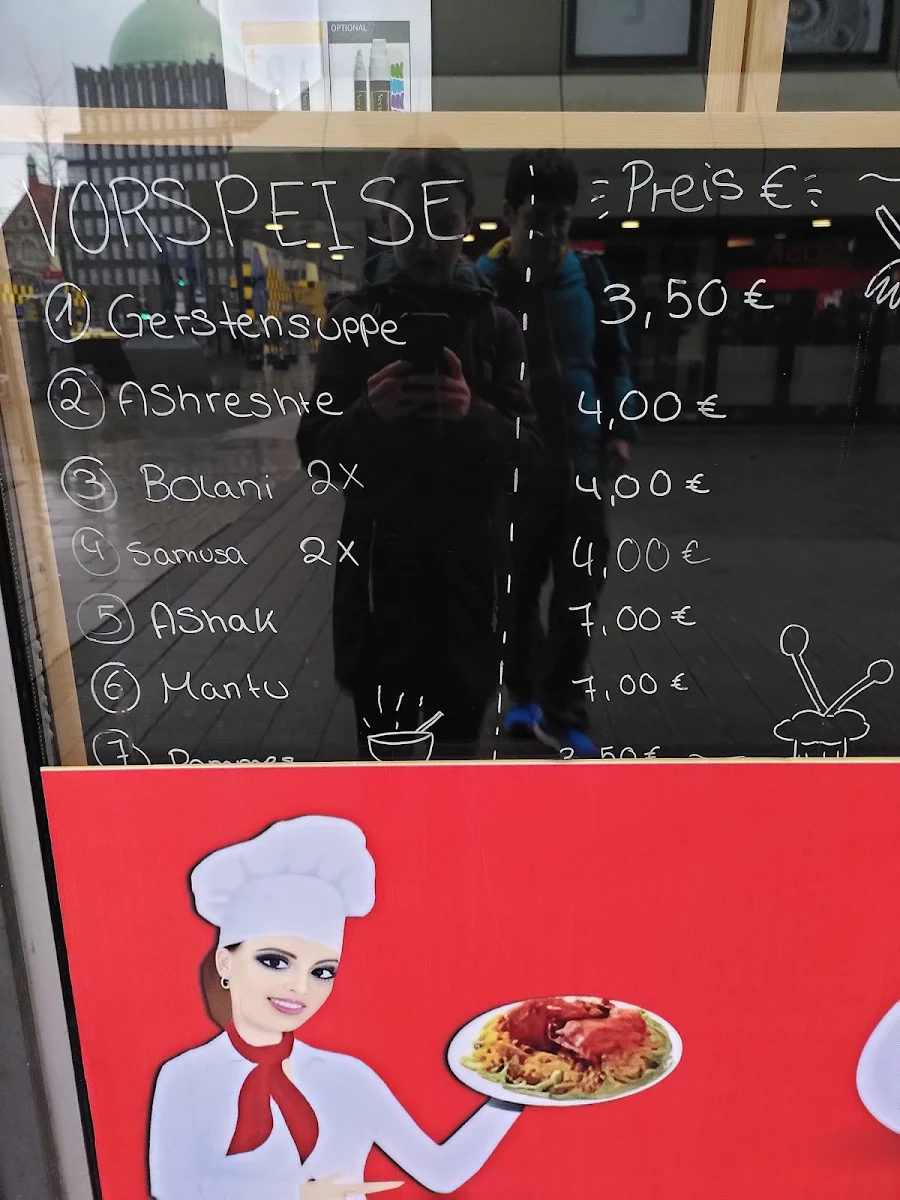 OPTIONAL
VORSPEISE Preis €
1 Gerstensuppe 3,50 €
2 AShreshte 4,00 €
3 Bolani 2x 4,00 €
4 Samusa 2x 4,00 €
5 AShak 7,00 €
6 Mantu 7,00 €
7 Pommes 3,50 €